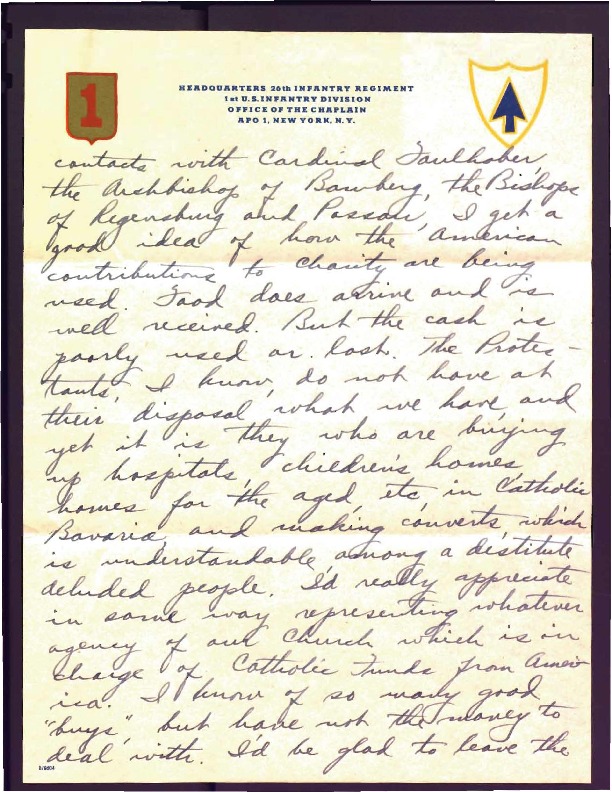 1
HEADQUARTERS 26th INFANTRY REGIMENT
1st U.S. INFANTRY DIVISION
OFFICE OF THE CHAPLAIN
APO 1, NEW YORK, N.Y.
contacts with Cardinal Faulhaber,
the Archbishop of Bamberg, the Bishops
of Regensburg and Passau, I get a
good idea of how the American
contributions to charity are being
used. Food does arrive and is
well received. But the cash is
poorly used or lost. The Protes-
tants, I know, do not have at
their disposal what we have, and
yet it is they who are buying
up hospitals, children's homes,
homes for the aged, etc in Catholic
Bavaria, and making converts, which
is understandable among a destitute
deluded people. I'd really appreciate
in some way representing whatever
agency of our Church which is in
charge of Catholic Funds from Amer-
ica. I know of so many good
"buys", but have not the money to
deal with. I'd be glad to leave the